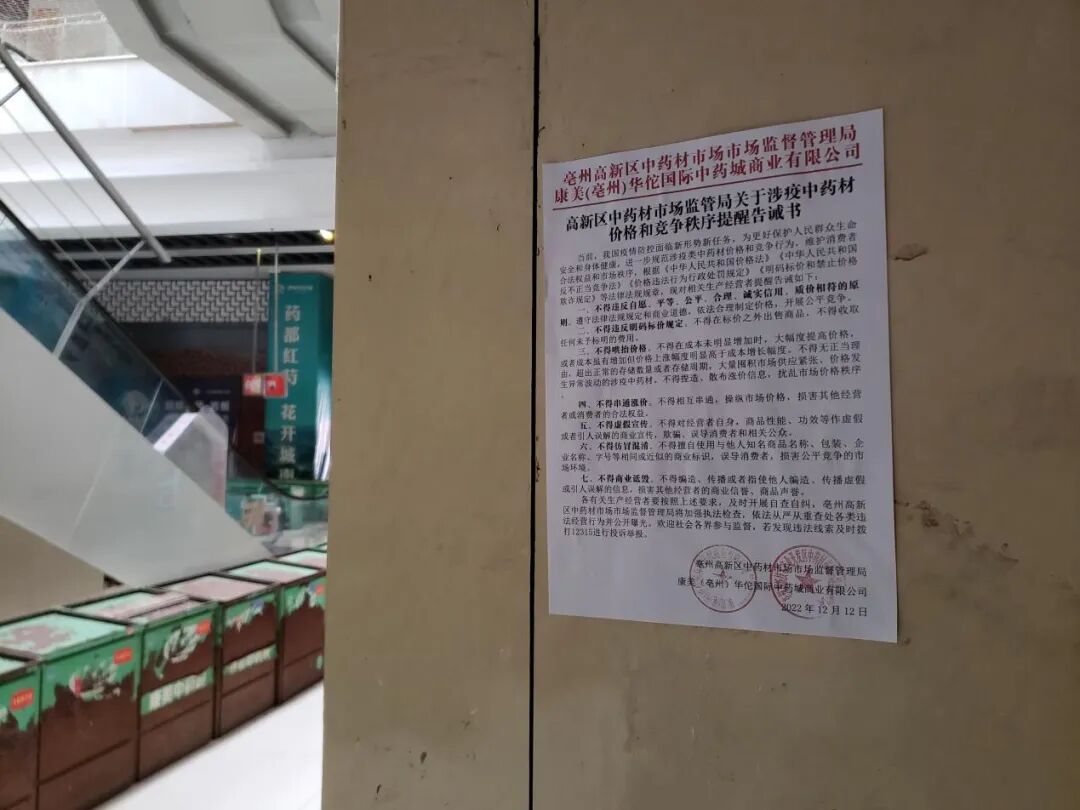 亳州高新区中药材市场市场监督管理局
康美(亳州)华佗国际中药城商业有限公司
高新区中药材市场监管局关于涉疫中药材
价格和竞争秩序提醒告诫书
当前，我国疫情防控面临新形势新任务，为更好保护人民群众生命
安全和身体健康，进一步规范涉疫类中药材价格和竞争行为，维护消费者
合法权益和市场秩序，根据《中华人民共和国价格法》《中华人民共和国
反不正当竞争法》《价格违法行为行政处罚规定》《明码标价和禁止价格
欺诈规定》等法律法规规章，现对相关生产经营者提醒告诫如下：
一、不得违反自愿、平等、公平、合理、诚实信用、质价相符的原
则。遵守法律法规规定和商业道德，依法合理制定价格，开展公平竞争。
二、不得违反明码标价规定。不得在标价之外出售商品，不得收取
任何未予标明的费用。
三、不得哄抬价格。不得在成本未明显增加时，大幅度提高价格，
或者成本虽有增加但价格上涨幅度明显高于成本增长幅度。不得无正当理
由，超出正常的存储数量或者存储周期，大量囤积市场供应紧张、价格发
生异常波动的涉疫中药材。不得捏造、散布涨价信息，扰乱市场价格秩序
。
四、不得串通涨价。不得相互串通，操纵市场价格，损害其他经营
者或消费者的合法权益。
五、不得虚假宣传。不得对经营者自身，商品性能、功效等作虚假
或者引人误解的商业宣传，欺骗、误导消费者和相关公众。
六、不得仿冒混淆。不得擅自使用与他人知名商品名称、包装、企
业名称、字号等相同或近似的商业标识，误导消费者，损害公平竞争的市
场环境。
七、不得商业诋毁。不得编造、传播或者指使他人编造、传播虚假
或引人误解的信息，损害其他经营者的商业信誉、商品声誉。
各有关生产经营者要按照上述要求，及时开展自查自纠，亳州高新
区中药材市场市场监督管理局将加强执法检查，依法从严从重查处各类违
法经营行为并公开曝光。欢迎社会各界参与监督，若发现违法线索及时拨
打12315进行投诉举报。
亳州高新区中药材市场市场监督管理局
康美（亳州）华佗国际中药城商业有限公司
2022年12月12日
药都红芍 花开城南